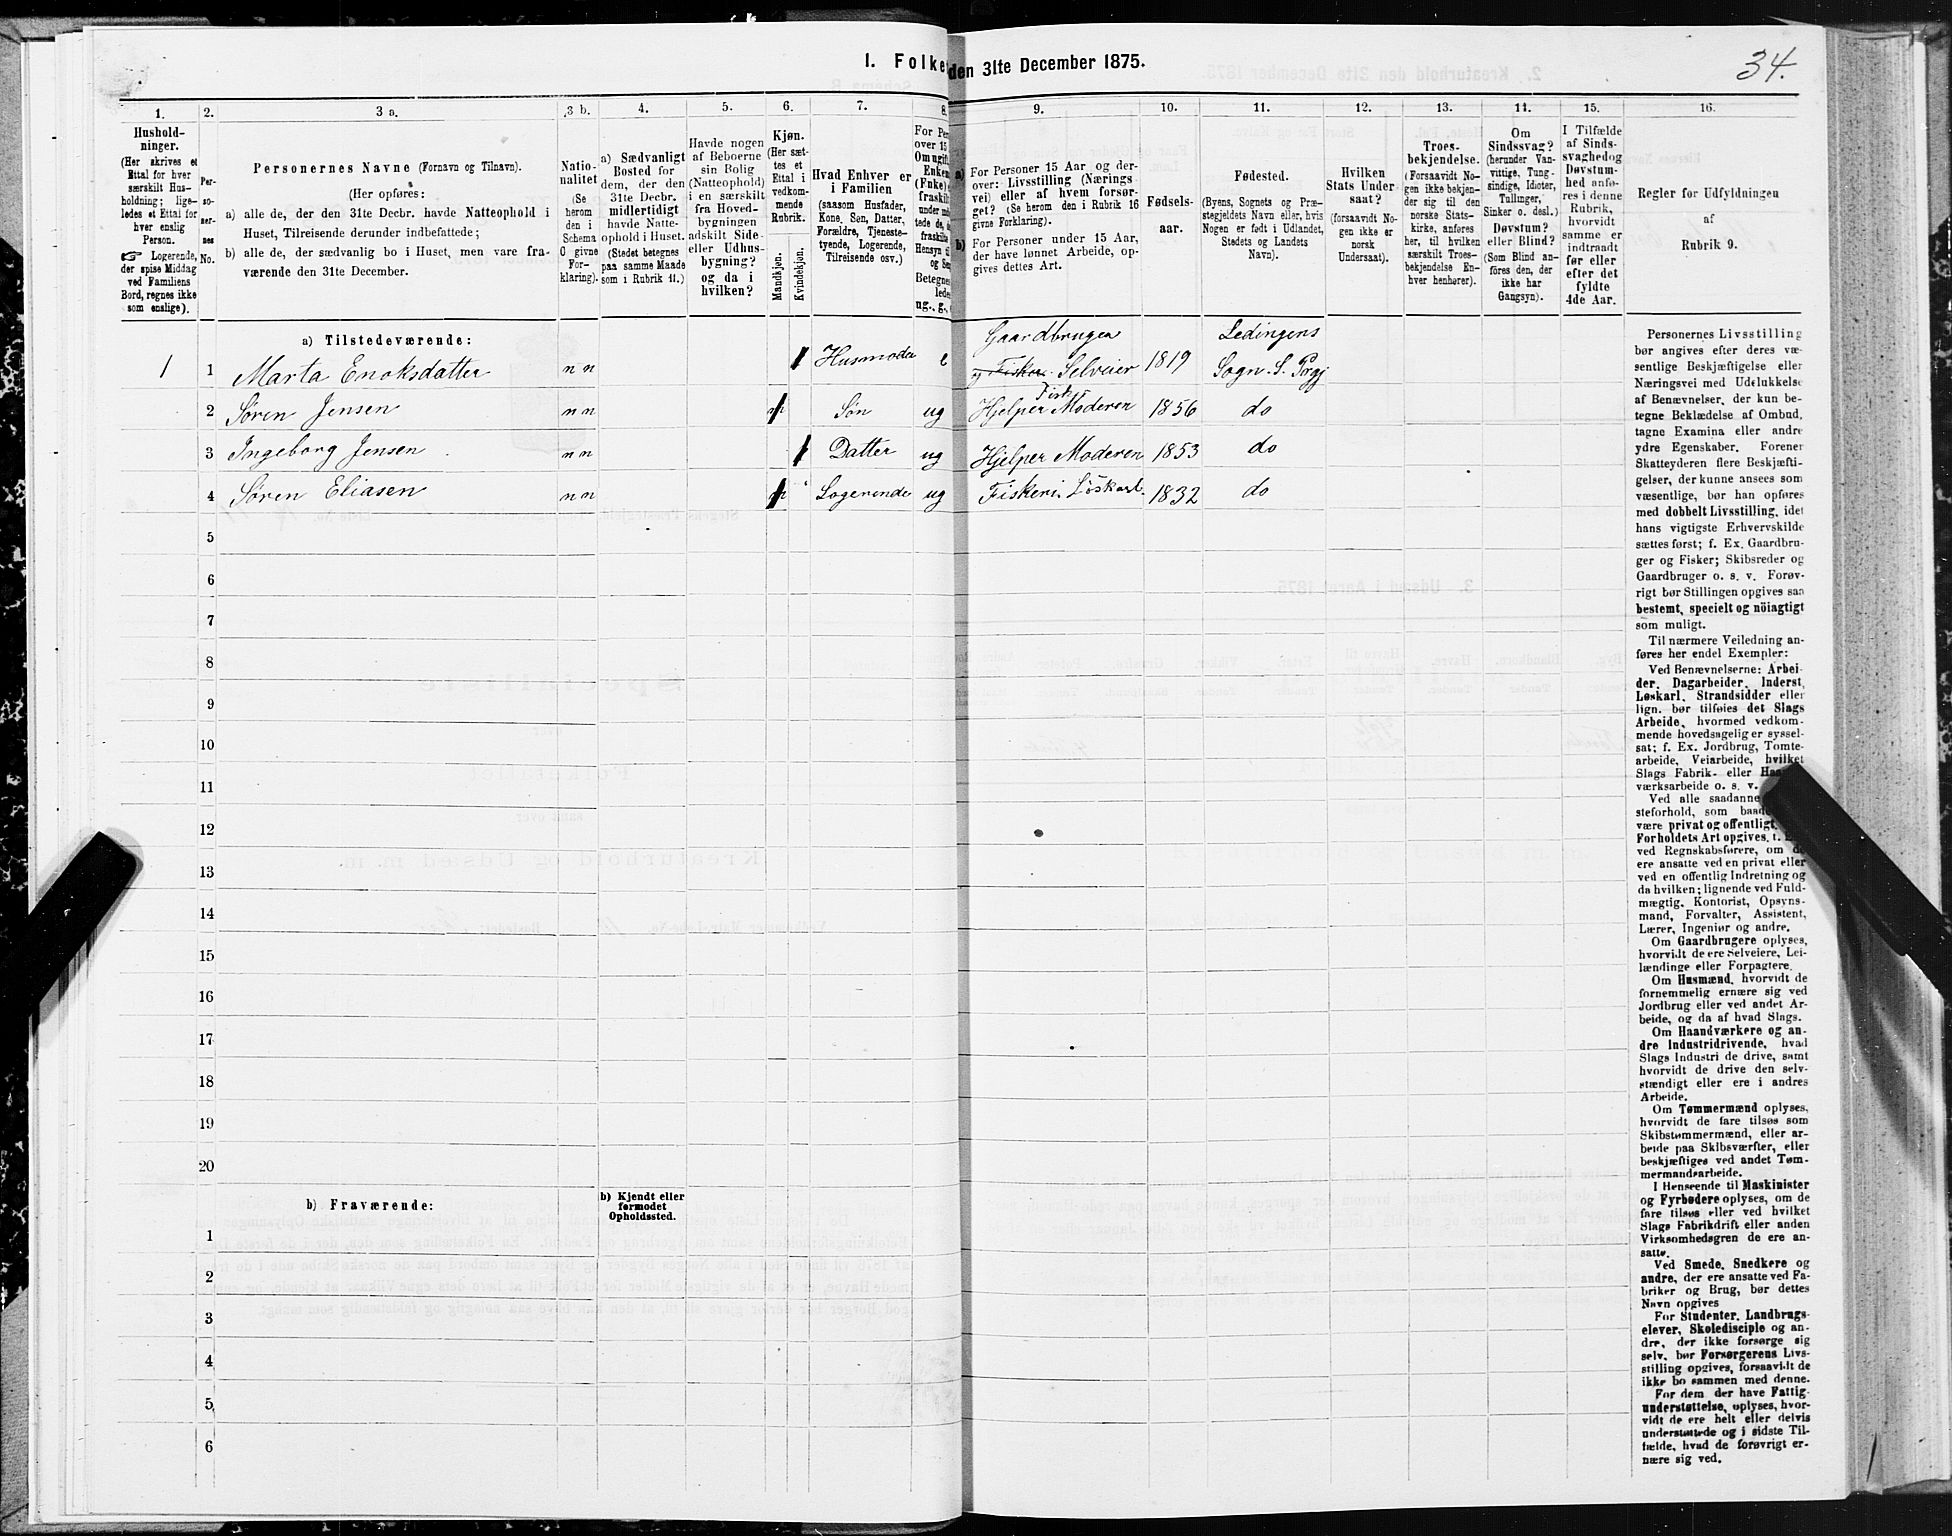 I. Folke
den 31te December 1875.
34.
1.
2.
3 a.
3 b.
4.
5.
6.
7.
8.
9.
10.
11.
12.
13.
14.
15.
16.
Hushold-
ninger.
(Her skrives et
Ettal for hver
særskilt Hus-
holdning; lige-
ledes et Ettal for
hver enslig
Person.
☞ Logerende,
der spise Middag
ved Familiens
Bord, regnes ikke
som enslige).
Per-
so-
ner-
nes
No.
Personernes Navne (Fornavn og Tilnavn).
(Her opføres:
a) alle de, der den 31te Decbr. havde Natteophold i
Huset, Tilreisende derunder indbefattede;
b) alle de, der sædvanlig bo i Huset, men vare fra-
værende den 31te December.
Natio-
nalitet
(Se
herom
den i
Schema
O givne
For-
klaring).
a) Sædvanligt
Bosted for
dem, der den
31te Decbr.
midlertidigt
havde Natte-
ophold i Huset.
(Stedet betegnes
paa samme Maade
som i Rubrik 11.)
Havde nogen
af Beboerne
sin Bolig
(Natteophold)
i en særskilt
fra Hoved-
bygningen
adskilt Side-
eller Udhus-
bygning?
og da i
hvilken?
Kjøn.
(Her sæt-
tes et
Ettal i
vedkom-
mende
Rubrik.
Mandkjøn.
Kvindekjøn.
Hvad Enhver er
i Familien
(saasom Husfader,
Kone, Søn, Datter,
Forældre, Tjeneste-
tyende, Logerende,
Tilreisende osv.)
For Per
over 15
Om ugift
Enkem
(Fnke)
fraskilt
under
tede de,
fraskilt
Hensyn til
og Se
Betegnes
lede
ug., g.,
a)
b)
For Personer 15 Aar og der-
over: Livsstilling (Nærings
vei) eller af hvem forsør-
get? (Se herom den i Rubrik 16
givne Forklaring).
For Personer under 15 Aar,
der have lønnet Arbeide, op-
gives dettes Art.
Fødsels-
aar.
Fødested.
(Byens, Sognets og Præ-
stegjeldets Navn eller, hvis
Nogen er født i Udlandet,
Stedets og Landets
Navn).
Hvilken
Stats Under-
saat?
(forsaavidt No-
gen ikke er
norsk
Undersaat).
Troes-
bekjendelse.
(Forsaavidt No-
gen ikke bekjen-
der sig til den
norske Stats-
kirke, anføres
her, til hvilken
særskilt Troes-
bekjendelse En-
hver henhører).
Om
Sindssvag?
(herunder Van-
vittige, Tung-
sindige, Idioter,
Tullinger,
Sinker o. desl.)
Døvstum?
eller Blind?
(Som Blind an-
føres den, der
ikke har
Gangsyn).
I Tilfælde
af Sinds-
svaghedog
Døvstum-
hed anfø-
res i denne
Rubrik,
hvorvidt
samme er
indtraadt
før eller
efter det
fyldte
4de Aar.
Regler for Udfyldningen
af
Rubrik 9.
a) Tilstedeværende:
Gaardbruger Ledingens
1 1 Marta Enoksdatter nn 1 Husmoder e og Fisker Selveier 1819 Sogn. S. Prgj
Fisk
2 Søren Jensen nn Søn ug Hjelper Moderen 1856 do
3 Ingeborg Jensen nn 1 Datter ug Hjelper Moderen 1853 do
4 Søren Eliasen nn Logerende ug Fiskeri Løskarl 1832 do
5
6
7
8
9
10
11
12
13
14
15
16
17
18
19
20
b) Fraværende:
b) Kjendt eller
formodet
Opholdssted.
1
2
3
4
5
6
Personernes Livsstilling
bør angives efter deres væ-
sentlige Beskjæftigelse eller
Næringsvei med Udelukkelse
af Benævnelser, der kun be-
tegne Beklædelse af Ombud,
tagne Examina eller andre
ydre Egenskaber. Forener
Skatteyderen flere Beskjæfti-
gelser, der kunne ansees som
væsentlige, bør han opføres
med dobbelt Livsstilling, idet
hans vigtigste Erhvervskilde
sættes først; f. Ex. Gaardbru-
ger og Fisker; Skibsreder og
Gaardbruger o. s. v. Forøv-
rigt bør Stillingen opgives saa
bestemt, specielt og nöiagtigt
som muligt.
Til nærmere Veiledning an-
føres her endel Exempler:
Ved Benævnelserne: Arbei-
der, Dagarbeider, Inderst,
Løskarl, Strandsidder eller
lign. bør tilføies det Slags
Arbeide, hvormed vedkom-
mende hovedsagelig er syssel-
sat; f. Ex. Jordbrug, Tomte-
arbeide, Veiarbeide, hvilket
Slags Fabrik- eller Haa
værksarbeide o. s. v.
Ved alle saadanne
steforhold, som baade
være privat og offentligt,
Forholdets Art opgives, t.
ved Regnskabsførere, om de
ere ansatte ved en privat eller
ved en offentlig Indretning og
da hvilken; lignende ved Fuld-
mægtig, Kontorist, Opsyns-
mand, Forvalter, Assistent,
Lærer, Ingeniør og andre.
Om Gaardbrugere oplyses,
hvorvidt de ere Selveiere, Lei-
lændinge eller Forpagtere.
Om Husmænd, hvorvidt de
fornemmelig ernære sig ved
Jordbrug eller ved andet Ar-
beide, og da af hvad Slags.
Om Haandværkere og an-
dre Industridrivende, hvad
Slags Industri de drive, samt
hvorvidt de drive den selv-
stændigt eller ere i andres
Arbeide.
Om Tømmermænd oplyses,
hvorvidt de fare tilsøs som
Skibstømmermænd, eller ar-
beide paa Skibsværfter, eller
beskjæftiges ved andet Tøm-
mermandsarbeide.
I Henseende til Maskinister
og Fyrbødere oplyses, om de
fare tilsøs eller ved hvilket
Slags Fabrikdrift eller anden
Virksomhedsgren de ere an-
satte.
Ved Smede, Snedkere og
andre, der ere ansatte ved Fa-
briker og Brug, bør dettes
Navn opgives
For Studenter, Landbrugs-
elever, Skoledisciple og an-
dre, der ikke forsørge sig
selv, bør Forsørgerens Livs-
stilling opgives, forsaavidt de
ikke bo sammen med denne.
For dem, der have Fattig-
understøttelse, oplyses, hvor-
vidt de ere helt eller delvis
understøttede og i sidste Til-
fælde, hvad de forøvrigt er-
nære sig ved.